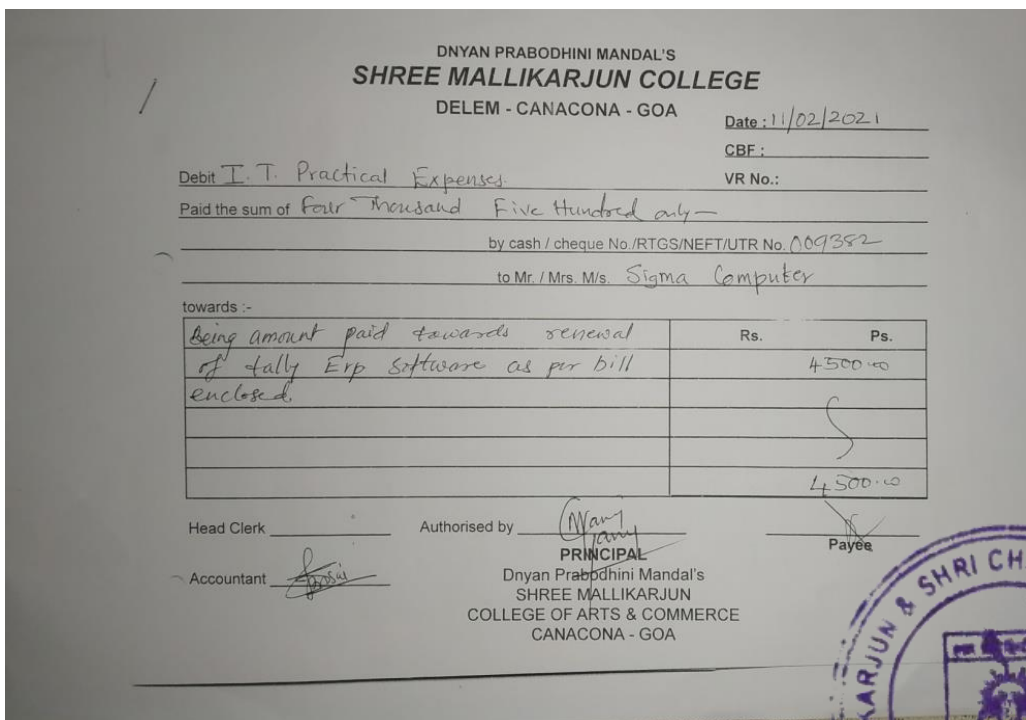 DNYAN PRABODHINI MANDAL'S
SHREE MALLIKARJUN COLLEGE
DELEM - CANACONA - GOA
Date : 11/02/2021
CBF :
Debit I. T. Practical Expenses.
VR No.:
Paid the sum of Four Thousand Five Hundred only —
by cash / cheque No./RTGS/NEFT/UTR No. 009382
to Mr. / Mrs. M/s. Sigma Computer
towards :-
Being amount paid towards renewal Rs. Ps.
of tally Erp Software as per bill 4500.00
enclosed.
4500.00
Head Clerk Authorised by
Payee
PRINCIPAL
Accountant
Dnyan Prabodhini Mandal's
SHREE MALLIKARJUN
COLLEGE OF ARTS & COMMERCE
CANACONA - GOA
KARJUN & SHRI CH